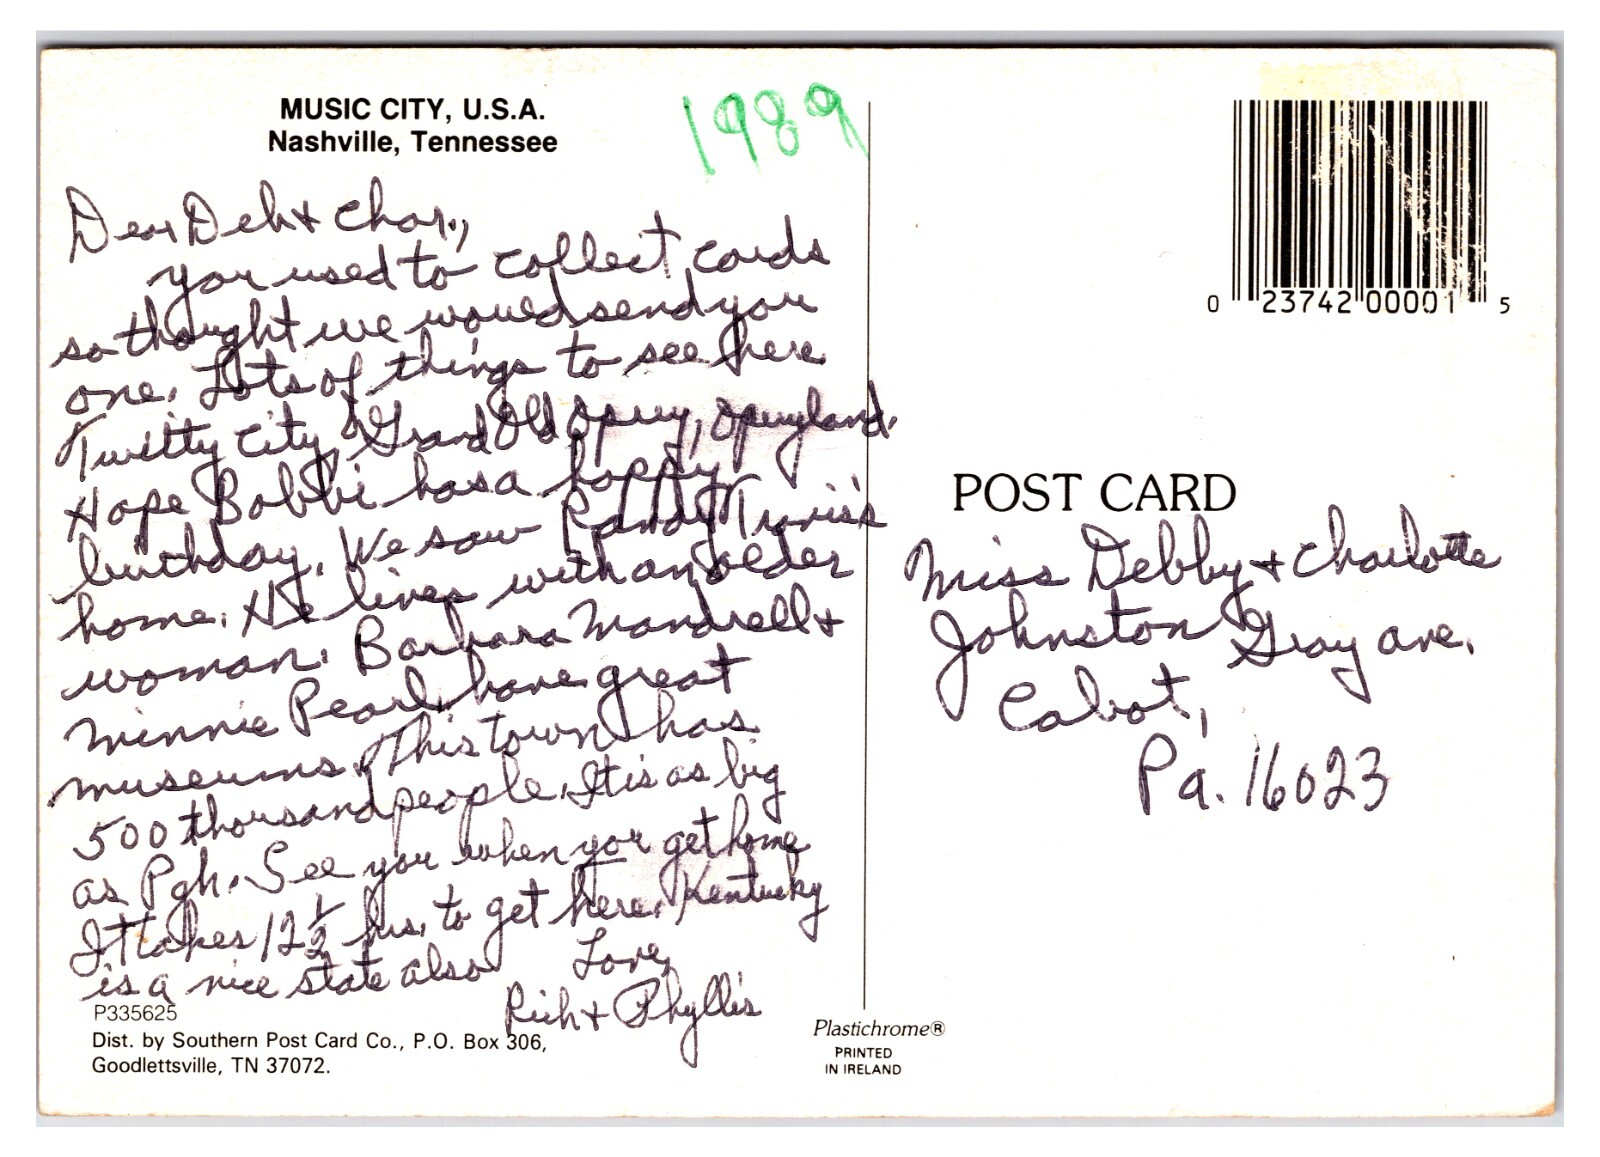 MUSIC CITY, U.S.A.
Nashville, Tennessee
1989
Dear Deb + Char.,
you used to collect cards
so thought we would send you
one. Lots of things to see here
Twitty City, Grand Old Opry, Opryland.
Hope Bobbi has a happy
birthday. We saw Randy Travis's
home. He lives with an older
woman. Barbara Mandrell +
Minnie Pearl have great
museums. This town has
500 thousand people. It is as big
as Pgh. See you when you get home
It takes 12 1/2 hrs. to get here. Kentucky
is a nice state also
Love,
Rich + Phyllis
P335625
Dist. by Southern Post Card Co., P.O. Box 306,
Goodlettsville, TN 37072.
Plastichrome®
PRINTED
IN IRELAND
0 23742 00001 5
POST CARD
Miss Debby + Charlotte
Johnston Gray ave.
Cabot,
Pa. 16023